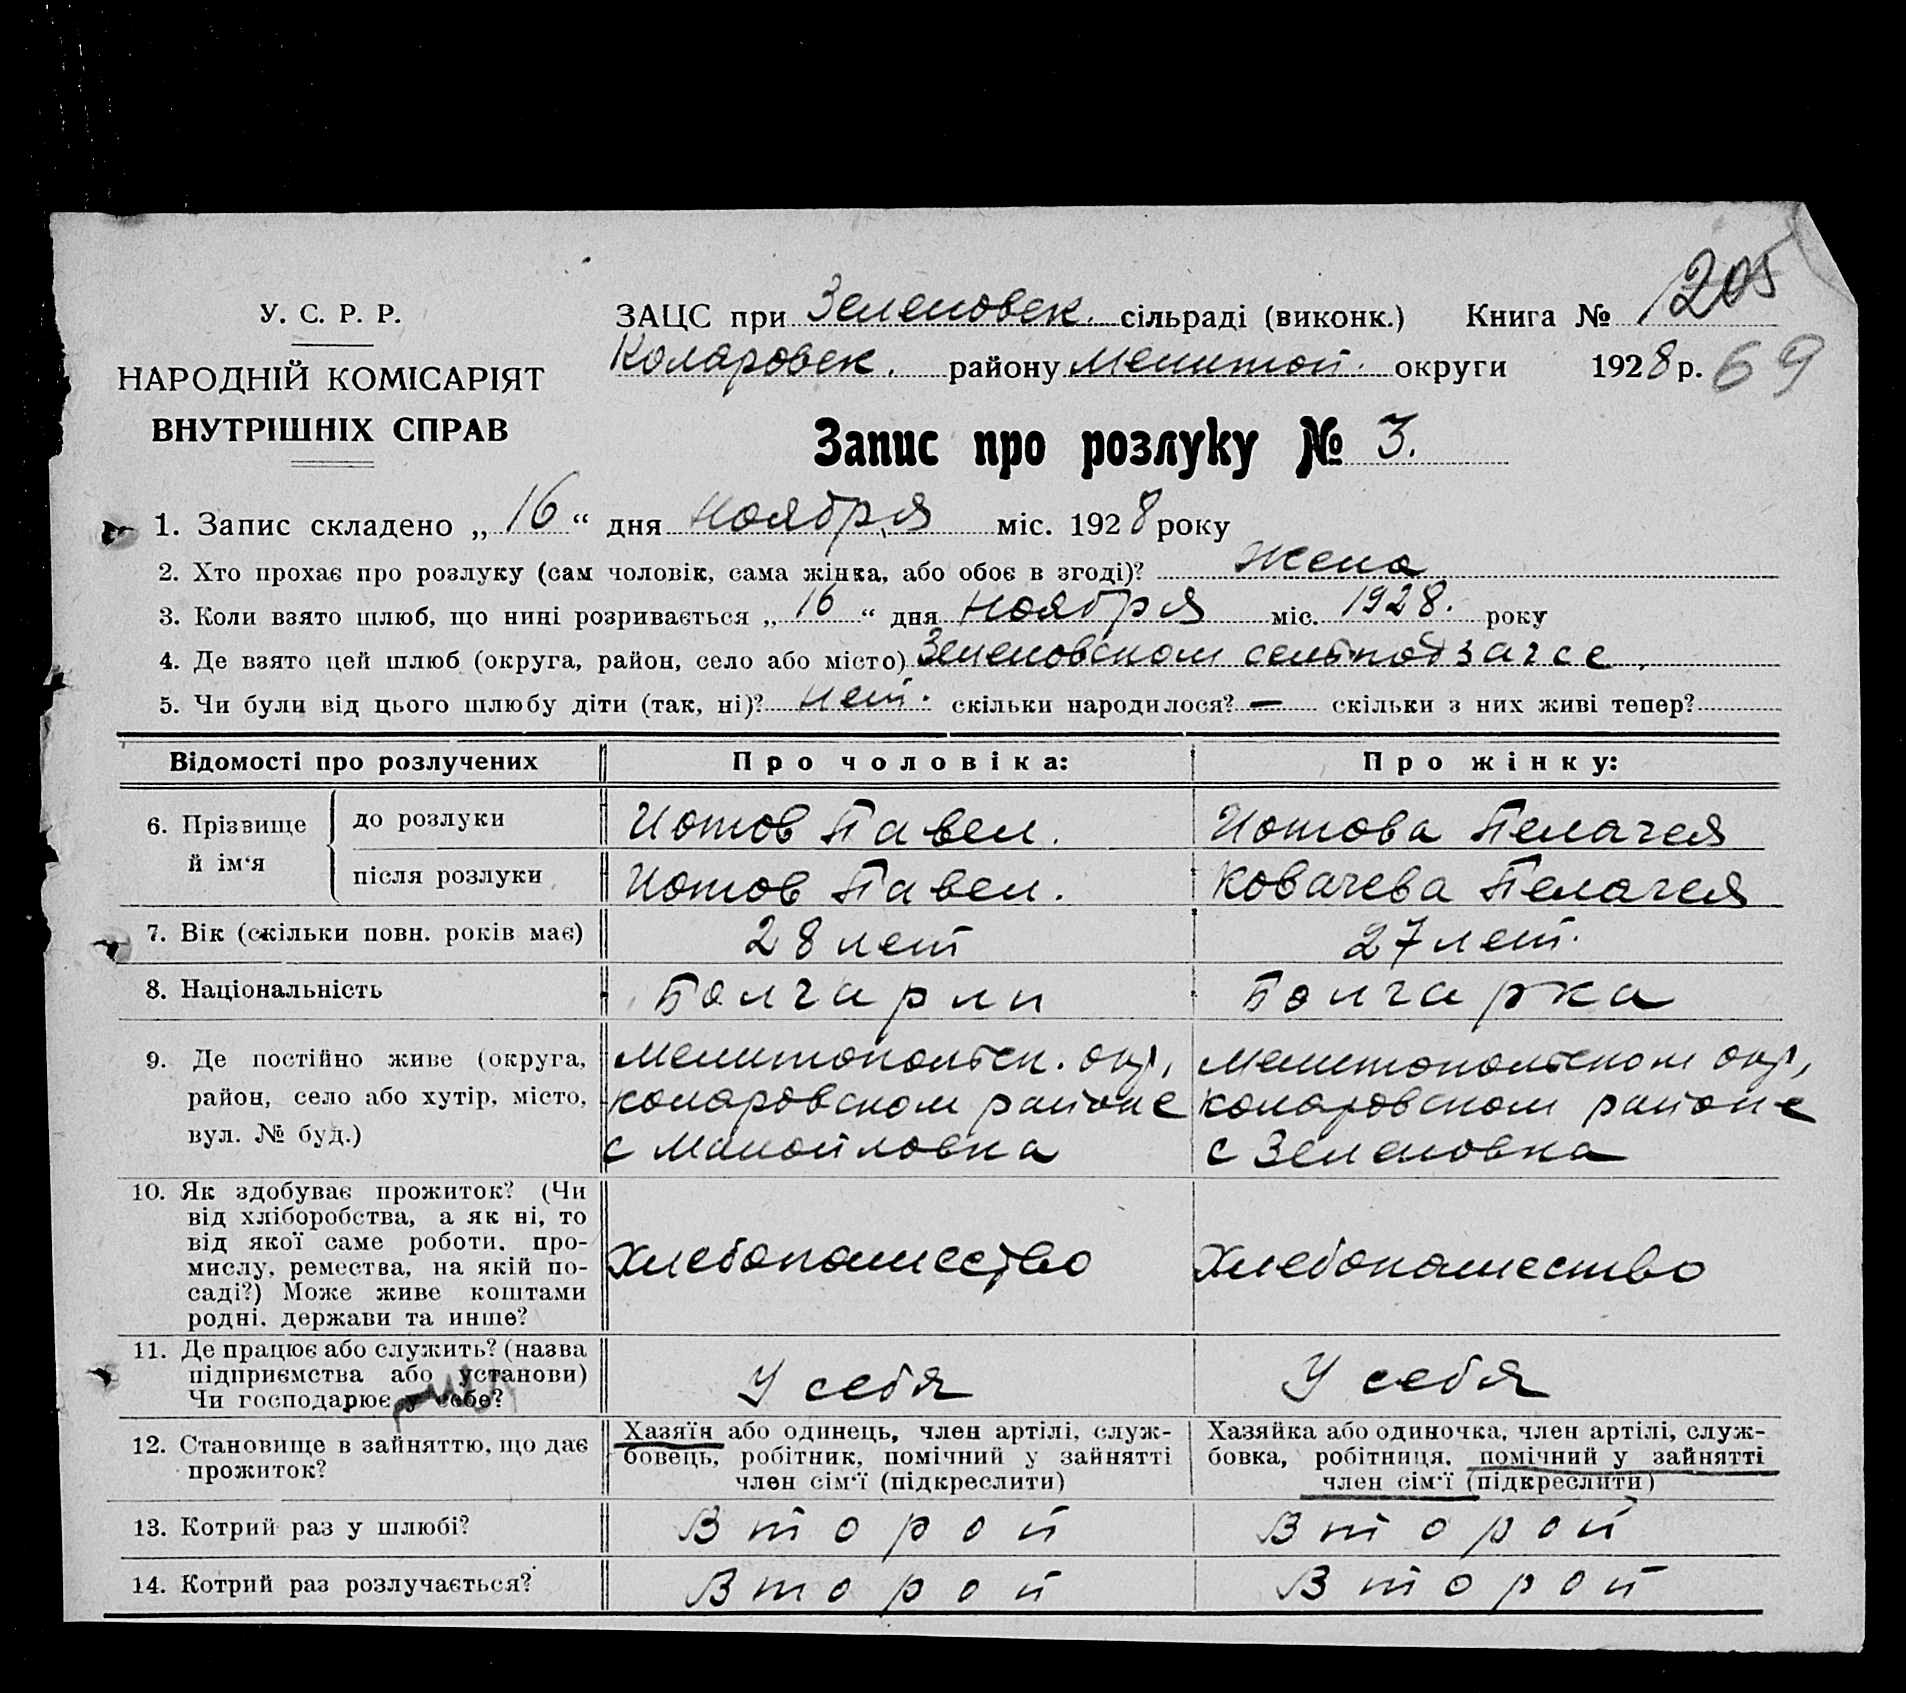 205
У. С. Р. Р.
НАРОДНІЙ КОМІСАРІЯТ
ВНУТРІШНІХ СПРАВ
ЗАЦС при Зеленовск. сільраді (виконк.) Книга №
Коларовск. району Мелитоп. округи 1928 р. 69
Запис про розлуку № 3.
1. Запис складено „16“ дня ноября міс. 1928 року
2. Хто прохає про розлуку (сам чоловік, сама жінка, або обоє в згоді)? жена
3. Коли взято шлюб, що нині розривається „16“ дня ноября міс. 1928. року
4. Де взято цей шлюб (округа, район, село або місто) Зеленовском
5. Чи були від цього шлюбу діти (так, ні)? нет. скільки народилося? — скільки з них живі тепер?
Відомості про розлучених Про чоловіка: Про жінку:
6. Прізвище й ім‘я
до розлуки Иотов Павел. Иотова Пелагея
після розлуки Иотов Павел. Ковачева Пелагея
7. Вік (скільки повн. років має) 28 лет 27 лет.
8. Національність Болгарин Болгарка
9. Де постійно живе (округа, район, село або хутір, місто, вул. № буд.)
Мелитопольск. окр, Мелитопольском окр,
Коларовском районе Коларовском районе
с Манойловка с Зеленовка
10. Як здобуває прожиток? (Чи
від хліборобства, а як ні, то
від якої саме роботи, про-
мислу, ремества, на якій по-
саді?) Може живе коштами
родні, держави та инше?
Хлебопашество Хлебопашество
11. Де працює або служить? (назва
підприємства або установи)
Чи господарює у себе?
У себя У себя
12. Становище в зайняттю, що дає
прожиток?
Хазяїн або одинець, член артілі, служ-
бовець, робітник, помічний у зайнятті
член сім‘ї (підкреслити)
Хазяйка або одиночка, член артілі, служ-
бовка, робітниця, помічний у зайнятті
член сім‘ї (підкреслити)
13. Котрий раз у шлюбі? Второй Второй
14. Котрий раз розлучається? Второй Второй